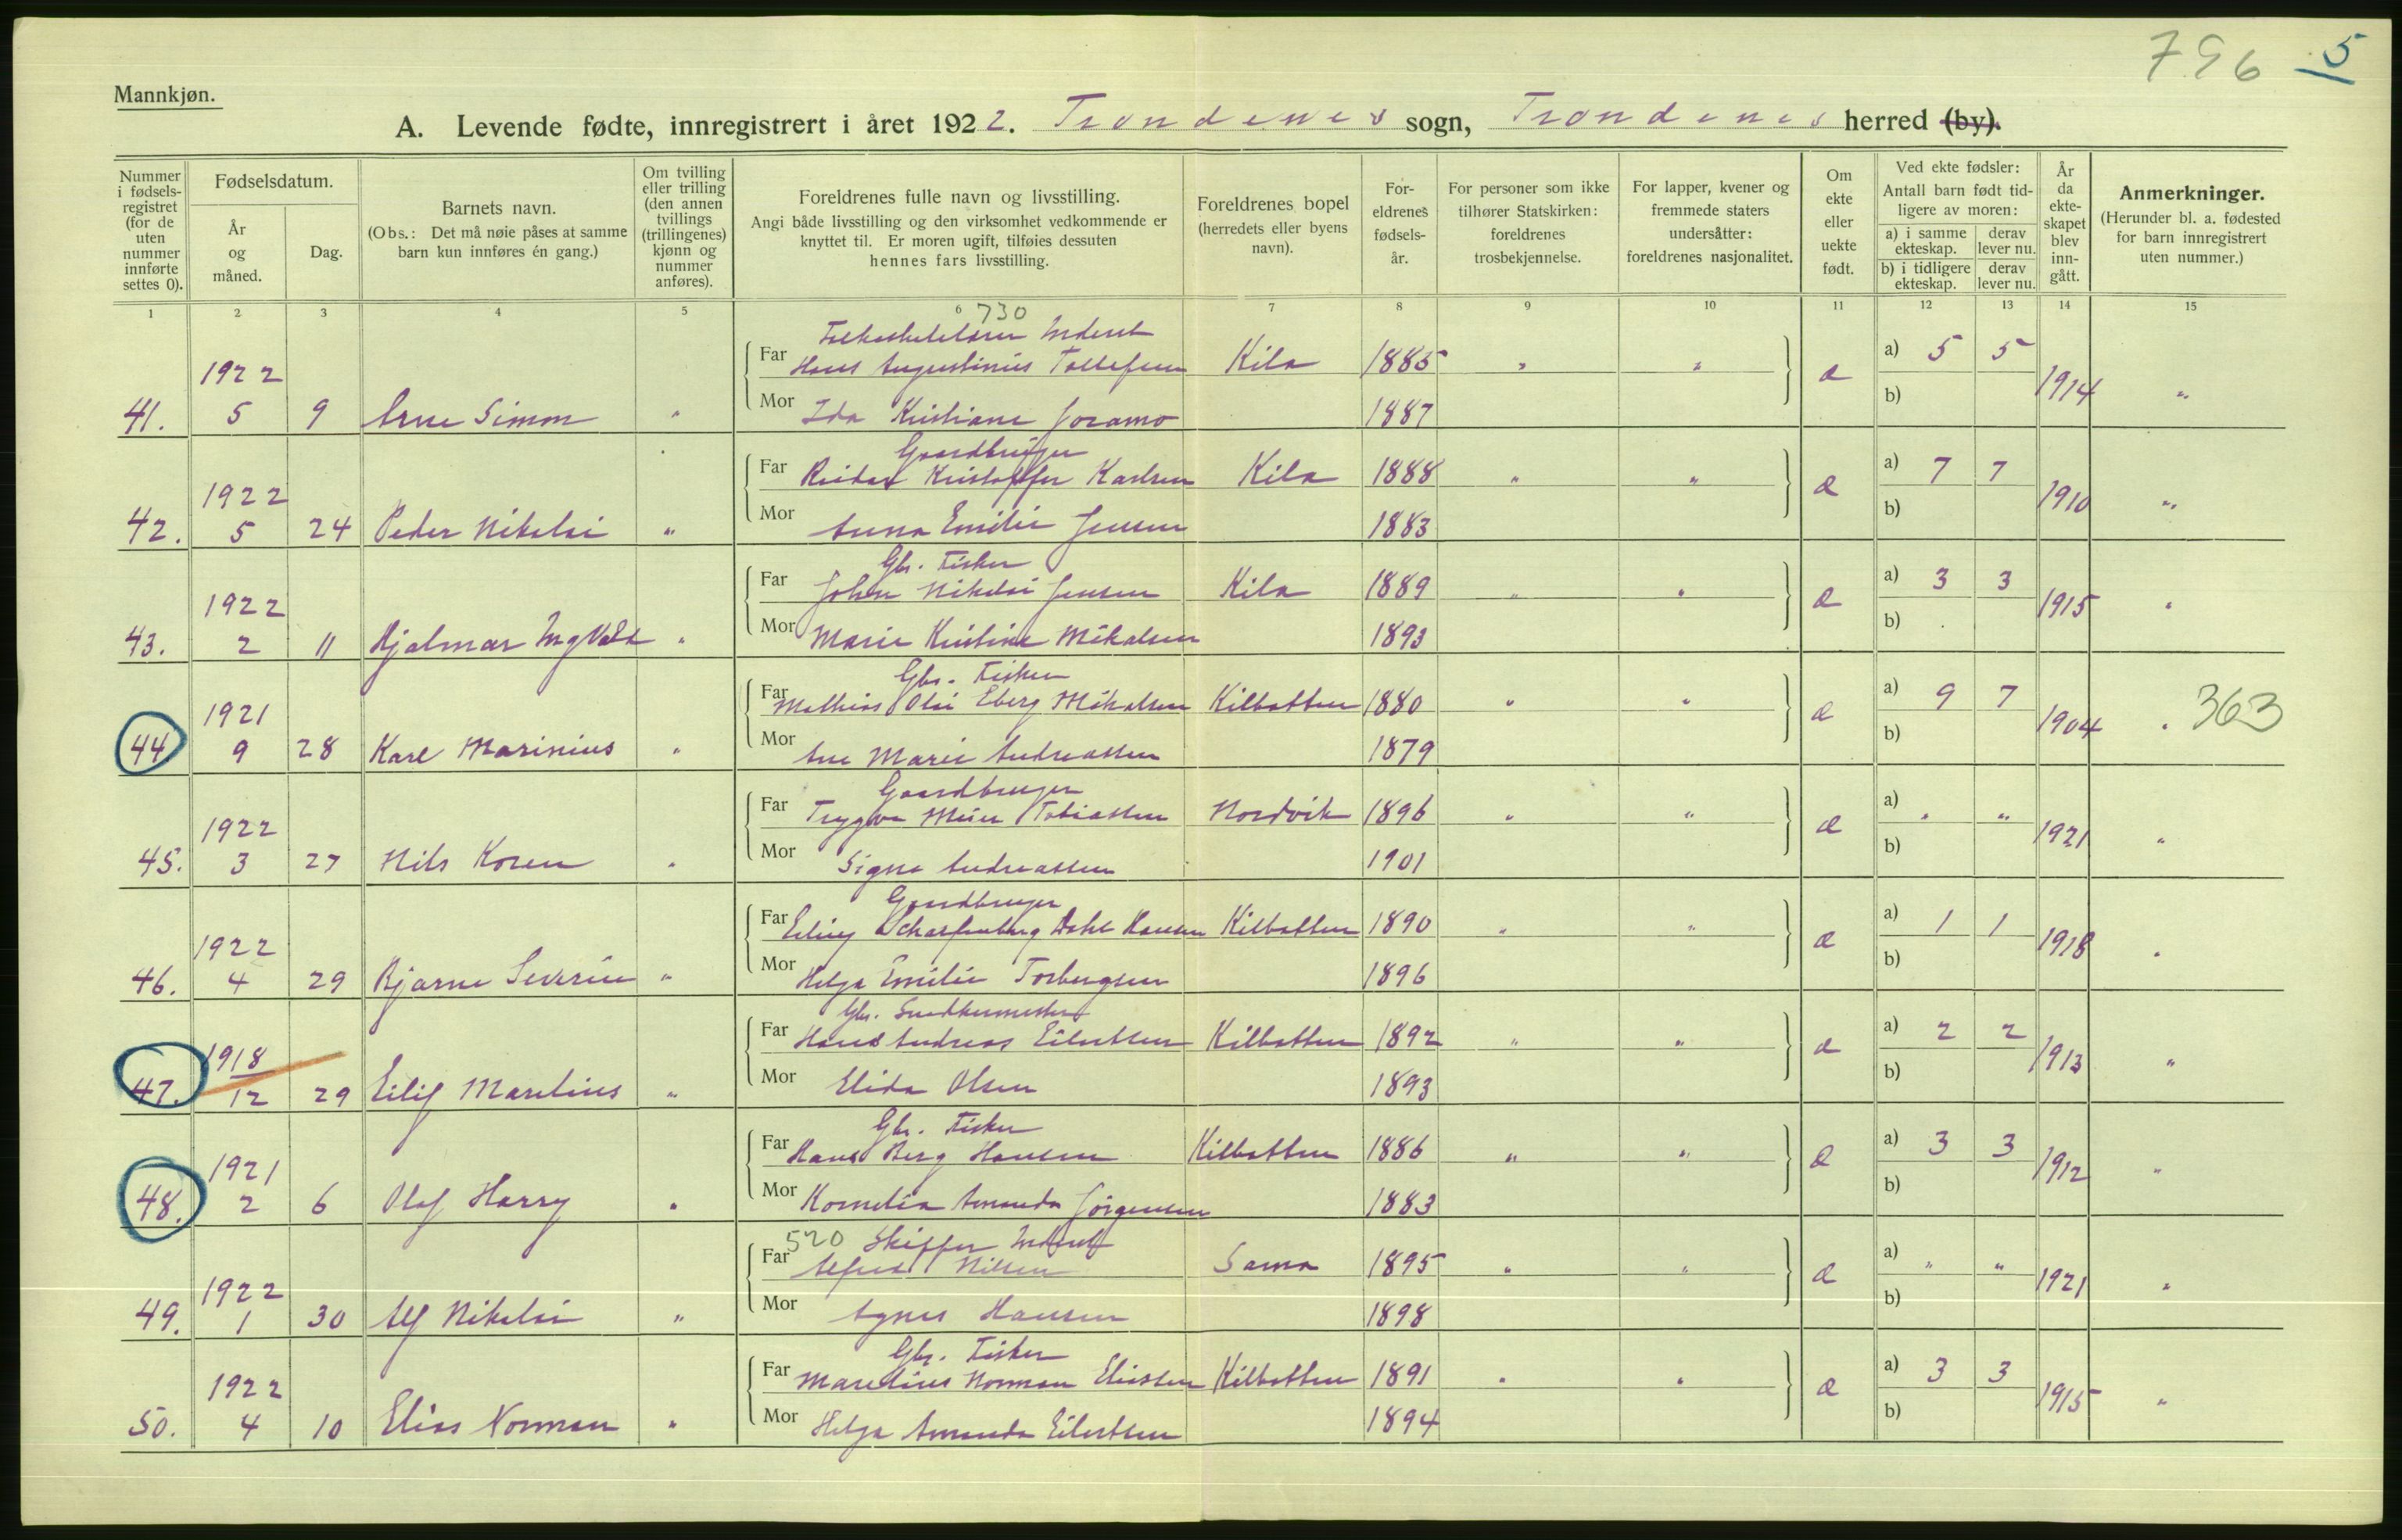 796 5
Mannkjøn.
A. Levende fødte, innregistrert i året 1922. Trondenes sogn, Trondenes herred (by).
Nummer i fødsels-registret (for de uten nummer innførte settes 0).
Fødselsdatum.
År og måned.
Dag.
Barnets navn.
(Obs.: Det må nøie påses at samme barn kun innføres én gang.)
Om tvilling eller trilling (den annen tvillings (trillingenes) kjønn og nummer anføres).
Foreldrenes fulle navn og livsstilling.
Angi både livsstilling og den virksomhet vedkommende er knyttet til. Er moren ugift, tilføies dessuten hennes fars livsstilling.
Foreldrenes bopel (herredets eller byens navn).
For-eldrenes fødsels-år.
For personer som ikke tilhører Statskirken: foreldrenes trosbekjennelse.
For lapper, kvener og fremmede staters undersåtter: foreldrenes nasjonalitet.
Om ekte eller uekte født.
Ved ekte fødsler:
Antall barn født tid-ligere av moren:
a) i samme ekteskap.
derav lever nu.
b) i tidligere ekteskap.
derav lever nu.
År da ekte-skapet blev inn-gått.
Anmerkninger.
(Herunder bl. a. fødested for barn innregistrert uten nummer.)
1 2 3 4 5 6 7 8 9 10 11 12 13 14 15
730
Far Hans Augustinius Tollefsen Kila 1885 " " a) 5 5
1922
41. 5 9 Arne Simon " Mor Ida Kristiane Joramo 1887 æ b) 1914 "
Gaardbruger
Far Reidar Kristoffer Karlsen Kila 1888 " " a) 7 7
1922
42. 5 24 Peder Nikolai " Mor Anna Emilie Jensen 1883 æ b) 1910 "
Gbr. Fisker
Far Johan Nikolai Jensen Kila 1889 " " a) 3 3
1922
43. 2 11 Hjalmar Ingvald " Mor Marie Kristine Mikalsen 1893 æ b) 1915 "
Gbr. Fisker
Far Mathias Olai Eberg Mikalsen Kilbotten 1880 " " a) 9 7
1921
44 9 28 Karl Marinius " Mor Ane Marie Andreassen 1879 æ b) 1904 " 363
Gaardbruger
Far Trygve Meier Tobiassen Nordvik 1896 " " a) " "
1922
45. 3 27 Nils Koren " Mor Signe Andreassen 1901 æ b) 1921 "
Gaardbruger
Far Erling Scharfenberg Dahl Hansen Kilbotten 1890 " " a) 1 1
1922
46. 4 29 Bjarne Severin " Mor Helga Emilie Torbergsen 1896 æ b) 1918 "
Gbr. Snedkermester
Far Hans Andreas Eilertsen Kilbotten 1892 " " a) 2 2
1918
47. 12 29 Eilif Marelius " Mor Elida Olsen 1893 æ b) 1913 "
Gbr. Fisker
Far Hans Berg Hansen Kilbotten 1886 " " a) 3 3
1921
48. 2 6 Olaf Harry " Mor Kornelia Amanda Jörgensen 1883 æ b) 1912 "
520 Skipper
Far Alfred Nilsen Sama 1895 " " a) " "
1922
49. 1 30 Alf Nikolai " Mor Agnes Hansen 1898 æ b) 1921 "
Gbr. Fisker
Far Marelius Norman Eliassen Kilbotten 1891 " " a) 3 3
1922
50. 4 10 Elias Norman " Mor Helga Amanda Eilertsen 1894 æ b) 1915 "